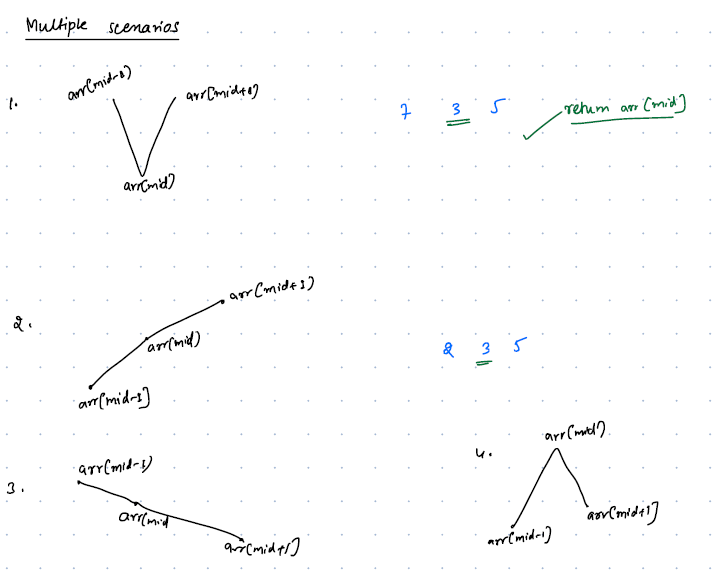 Multiple scenarios
1.
arr[mid-1]
arr[mid+1]
arr[mid]
7 3 5
return arr[mid]
2.
arr[mid+1]
arr[mid]
arr[mid-1]
2 3 5
3.
arr[mid-1]
arr[mid
arr[mid+1]
4.
arr[mid]
arr[mid-1]
arr[mid+1]